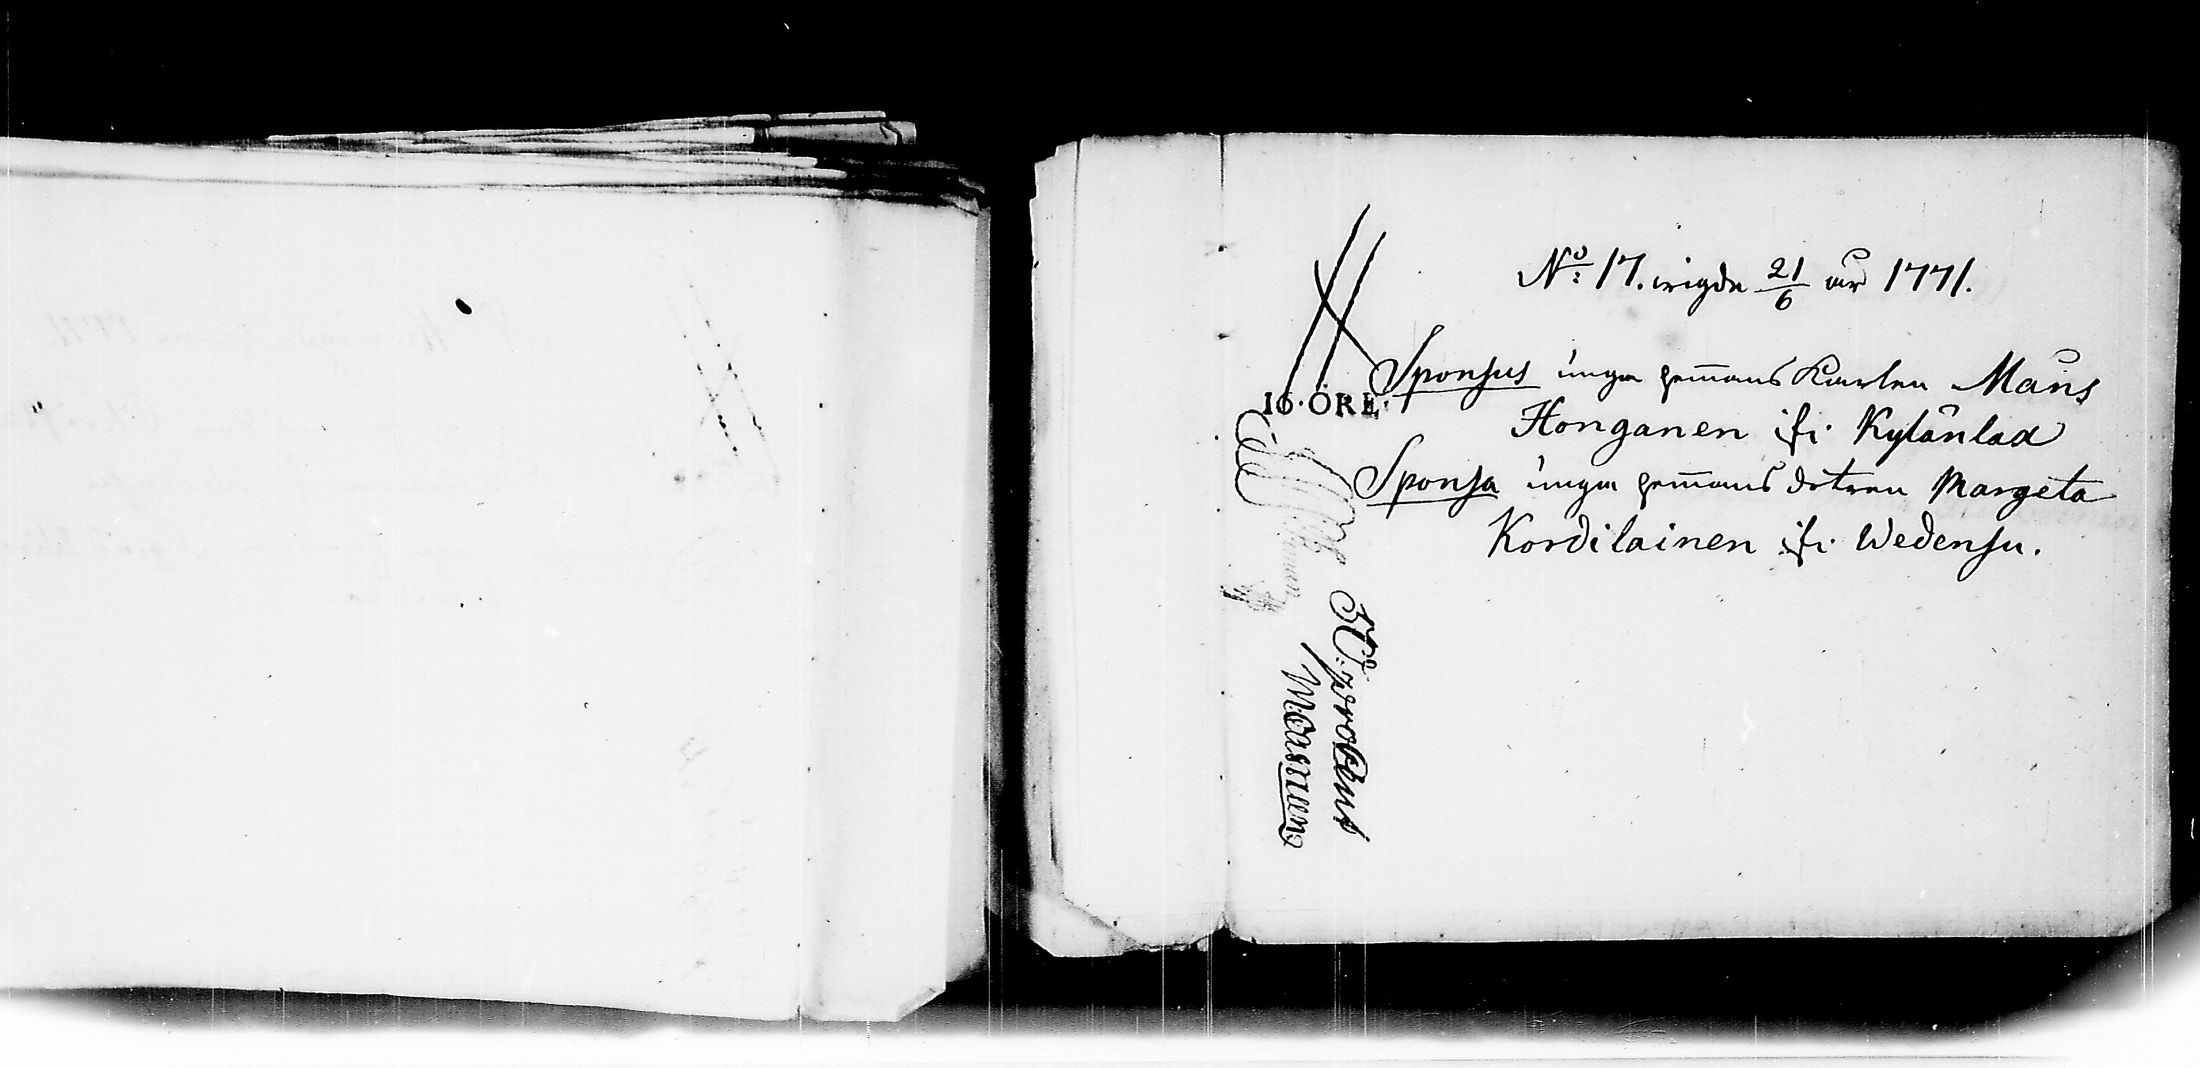 No: 17. wigda 21/6 år 1771.
Sponsus unga hem̄ans Karlen Måns
Honganen ifr. Kylänlax
Sponsa unga hem̄ans dotren Margeta
Kordilainen ifr. Wedensu.
16·ÖRE·